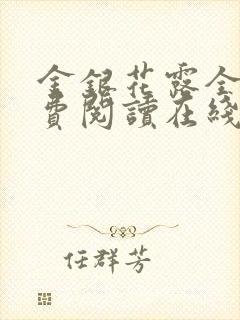 金銀花露全
費閱讀在綫
任群芳